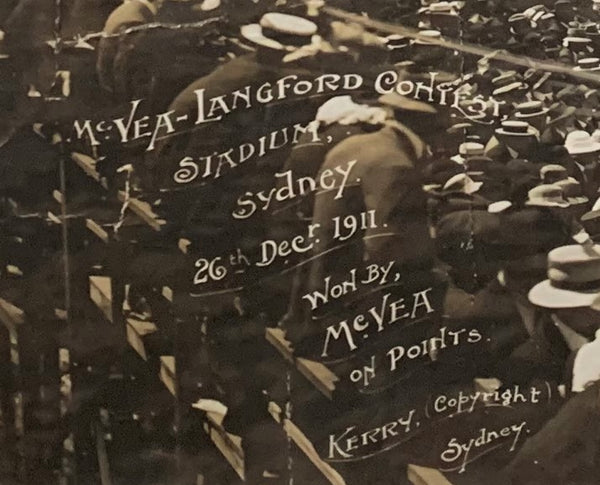 McVEA-LANGFORD CONTEST,
STADIUM,
Sydney.
26th Decr. 1911.
WON BY,
McVEA
ON POINTS.
KERRY, (Copyright)
Sydney.